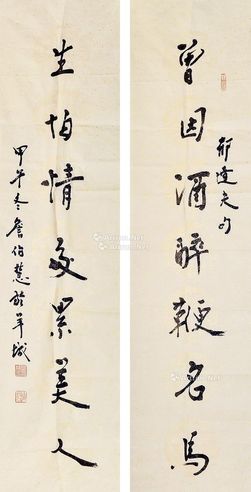 曾因酒醉鞭名马
郁达夫句
生怕情多累美人
甲午冬詹伯慧於羊城